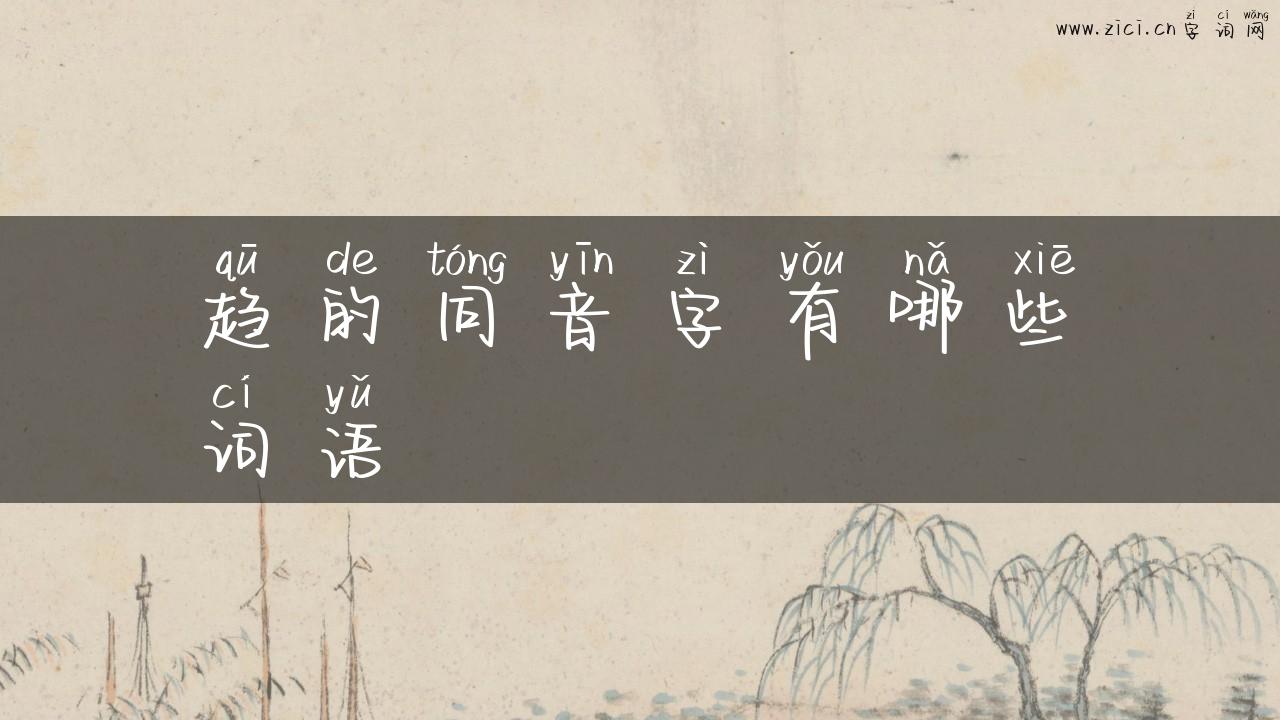 zì cí wǎng
www.zici.cn 字词网
qū de tóng yīn zì yǒu nǎ xiē
趋的同音字有哪些
cí yǔ
词语